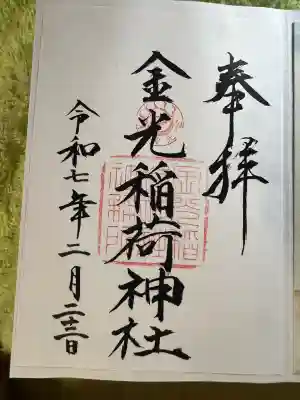 奉拝
金光稲荷神社
令和七年二月二十三日